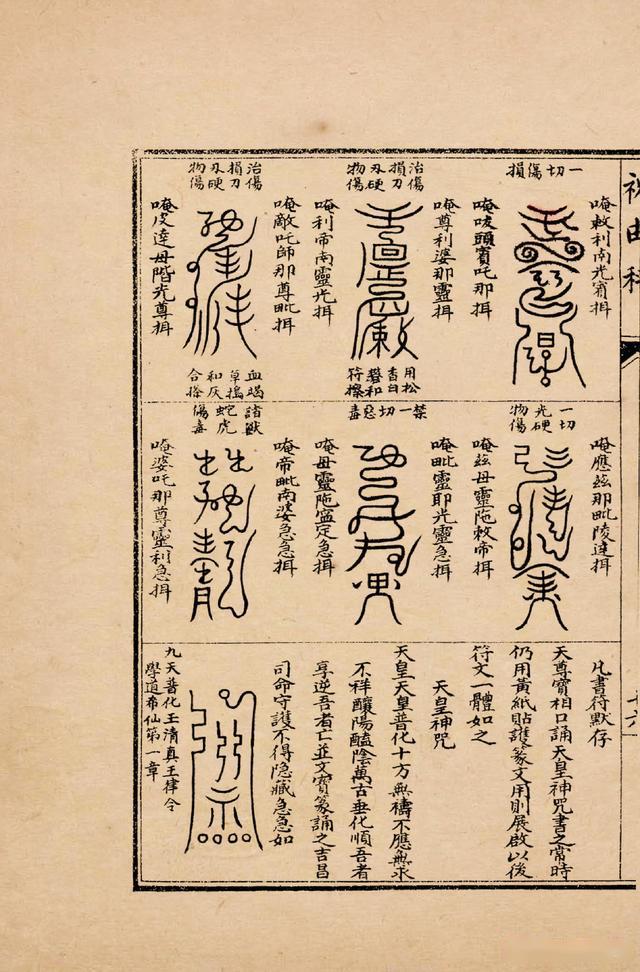 一切傷損
唵敕利南光賓揖
唵唆頭賓吒那揖
唵尊利婆那靈揖
治傷
損刀
刄硬
物傷
用松
香白
礬和
符搽
唵利帝南靈光揖
唵敵吒師那尊毗揖
治傷
損刀
刄硬
物傷
血竭
草搗
和灰
合搽
唵皮達毋階光尊揖
唵應茲那毗陵達揖
一切
光硬
物傷
唵茲母靈陁敕帝揖
唵毗靈耶光靈急揖
禁一切惡毒
唵毋靈陁寔定急揖
唵帝毗南婆急急揖
諸獸
蛇虎
傷毒
唵婆吒那尊靈利急揖
凡書符默存
天尊寶相口誦天皇神咒書之常時
仍用黃紙貼護篆文用則展啟以後
符文一體如之
天皇神咒
天皇天皇普化十方無禱不應無求
不祥釀陽醯陰萬古垂化順吾者
享逆吾者亡並文寶篆誦之吉昌
司命守護不得隱藏急急如
九天普化玉清真王律令
學道希仙第一章